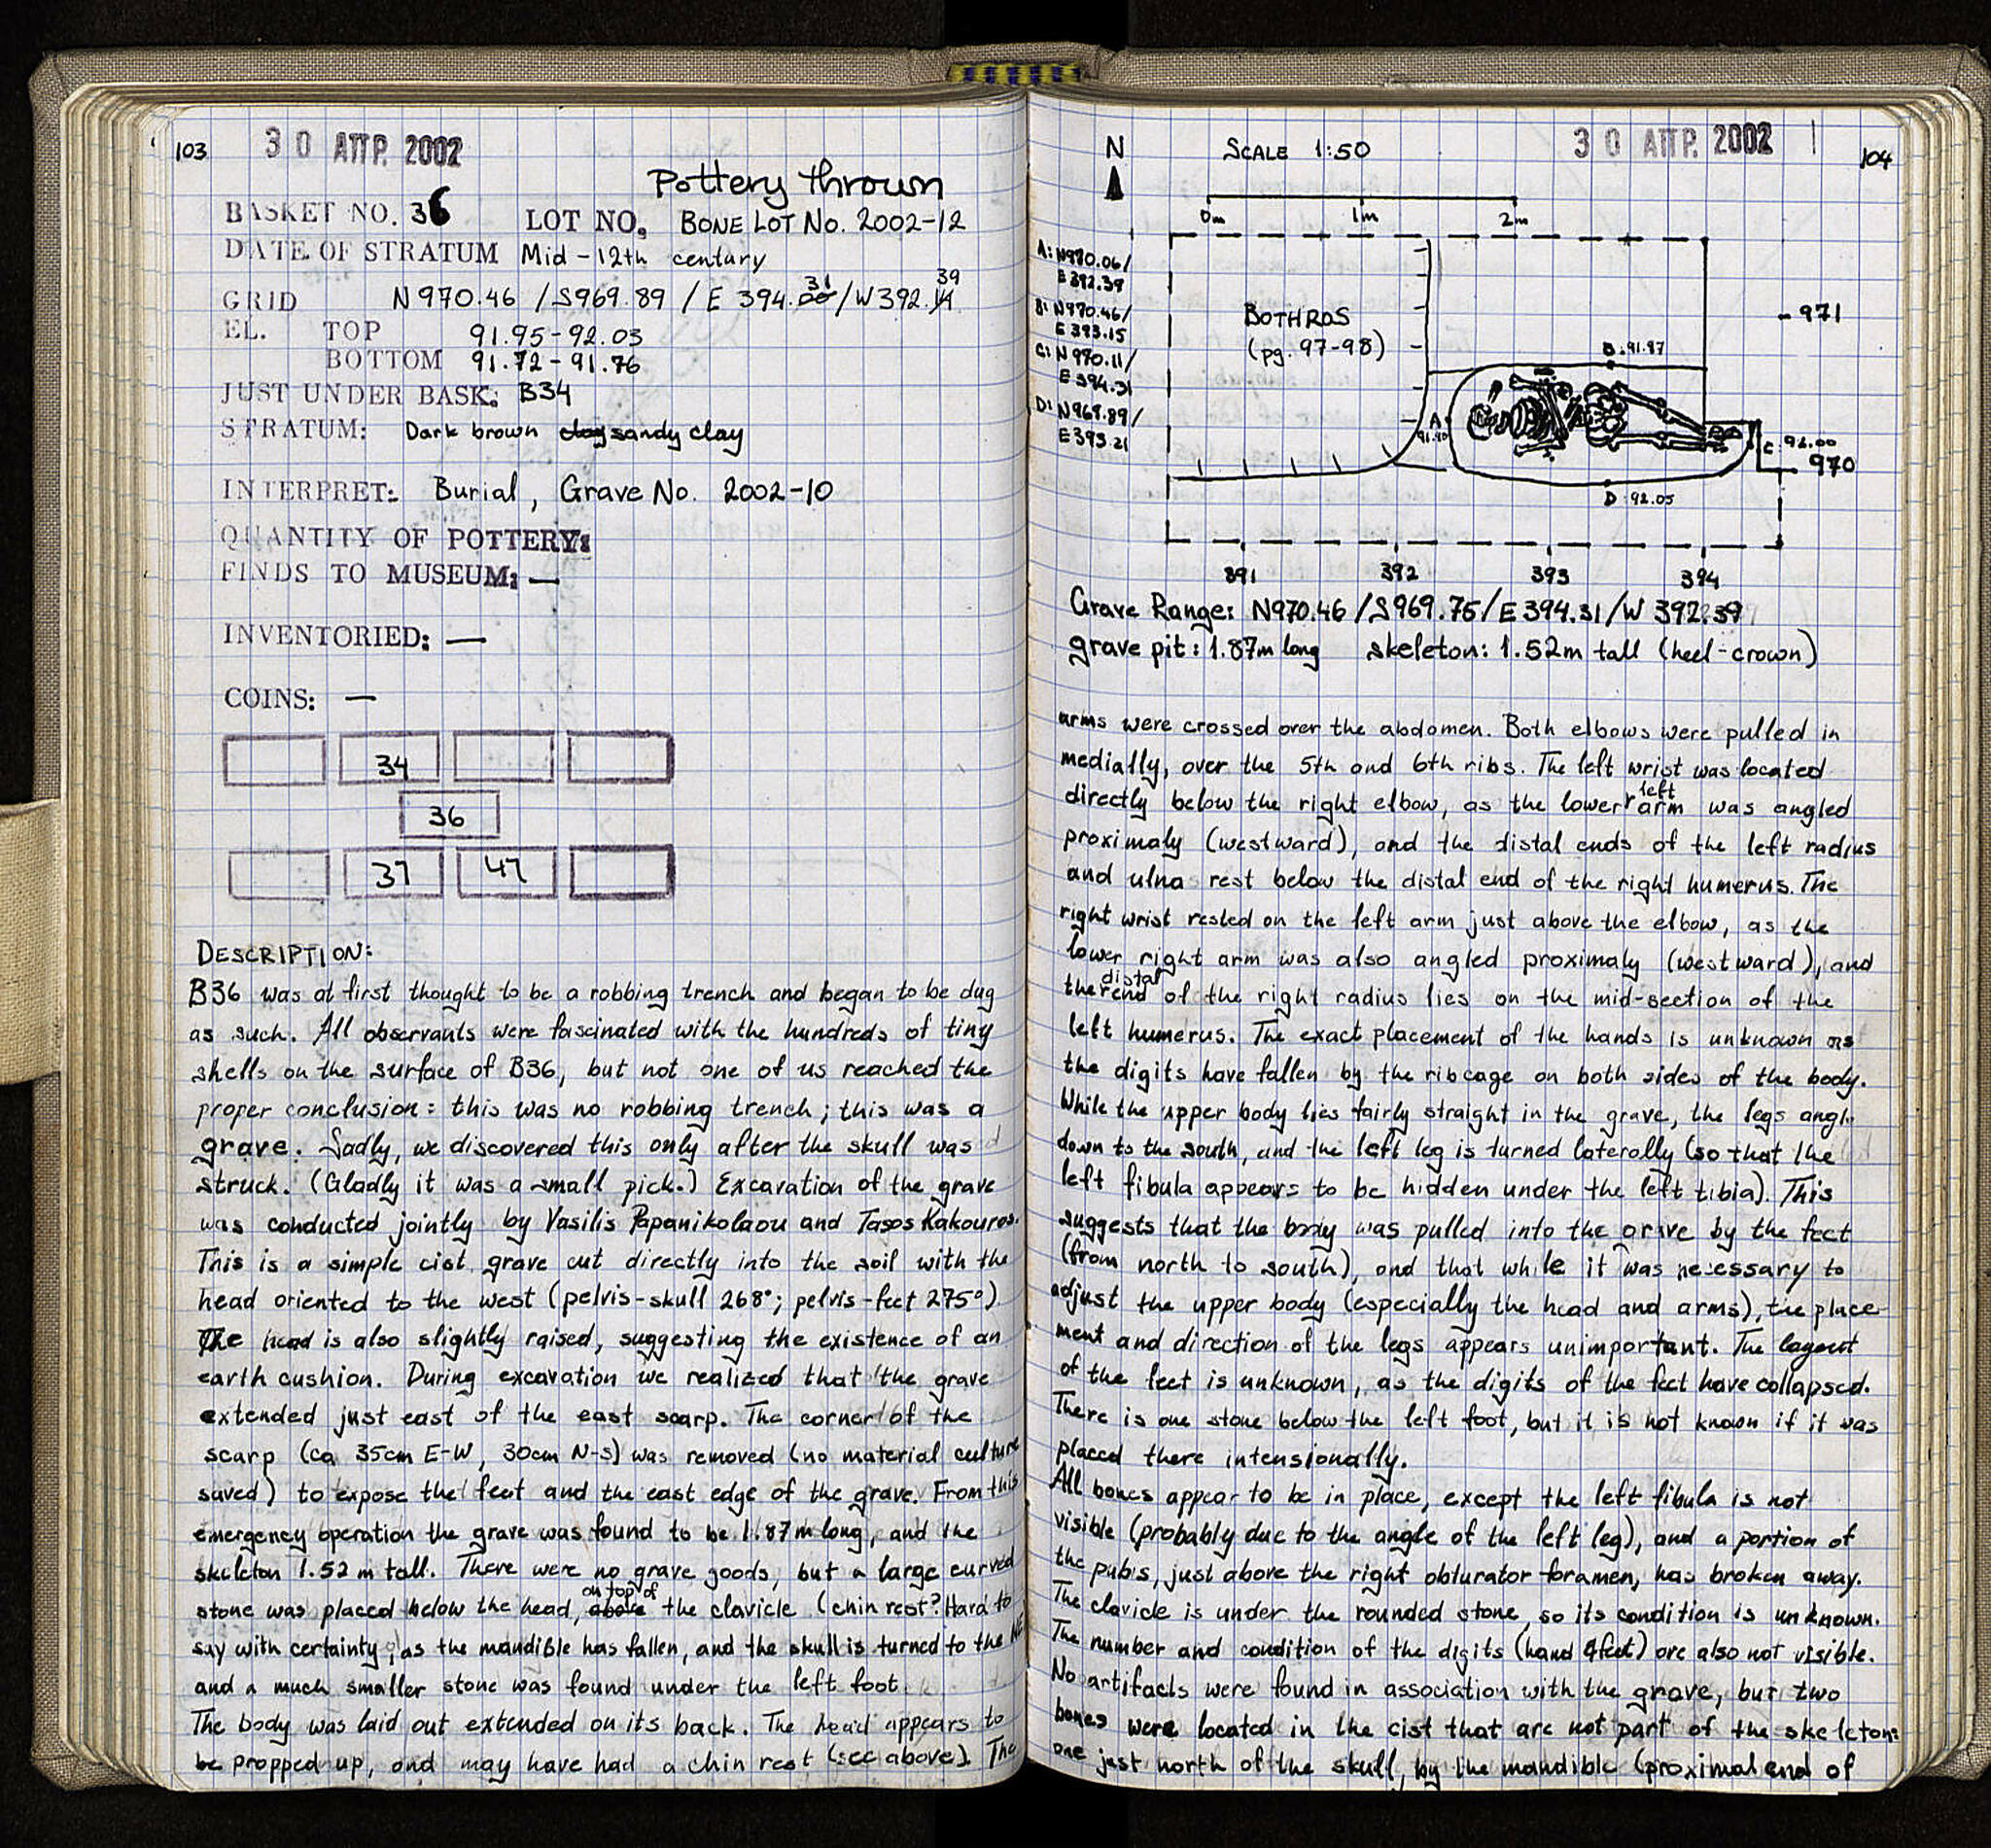 103
30 ΑΠΡ. 2002
Pottery thrown
BASKET NO. 36 LOT NO. BONE LOT No. 2002-12
DATE OF STRATUM Mid-12th century
GRID N970.46 / S969.89 / E 394.00 31 / W392.14 39
EL. TOP 91.95-92.03
BOTTOM 91.72-91.76
JUST UNDER BASK: B34
STRATUM: Dark brown clay sandy clay
INTERPRET: Burial, Grave No. 2002-10
QUANTITY OF POTTERY:
FINDS TO MUSEUM: —
INVENTORIED: —
COINS: —
34
36
37 47
DESCRIPTION:
B36 was at first thought to be a robbing trench and began to be dug
as such. All observants were fascinated with the hundreds of tiny
shells on the surface of B36, but not one of us reached the
proper conclusion: this was no robbing trench; this was a
grave. Sadly, we discovered this only after the skull was
struck. (Gladly it was a small pick.) Excavation of the grave
was conducted jointly by Vasilis Papanikolaou and Tasos Kakouros.
This is a simple cist grave cut directly into the soil with the
head oriented to the west (pelvis-skull 268°; pelvis-feet 275°).
The head is also slightly raised, suggesting the existence of an
earth cushion. During excavation we realized that the grave
extended just east of the east scarp. The corner of the
scarp (ca 35cm E-W, 30cm N-S) was removed (no material culture
saved) to expose the feet and the east edge of the grave. From this
emergency operation the grave was found to be 1.87m long, and the
skeleton 1.52 m tall. There were no grave goods, but a large curved
stone was placed below the head, above on top of the clavicle (chin rest? Hard to
say with certainty, as the mandible has fallen, and the skull is turned to the NE
and a much smaller stone was found under the left foot.
The body was laid out extended on its back. The head appears to
be propped up, and may have had a chin rest (see above). The
N
SCALE 1:50
30 ΑΠΡ. 2002
104
0m 1m 2m
A: N970.06/
E392.39
B: N970.46/
E393.15
C: N970.11/
E394.31
D: N969.89/
E393.21
BOTHROS
(pg. 97-98)
971
B: 91.87
A:
C: 92.00
970
D: 92.05
391 392 393 394
Grave Range: N970.46 / S969.75 / E394.31 / W 392.39
grave pit: 1.87m long skeleton: 1.52m tall (heel-crown)
arms were crossed over the abdomen. Both elbows were pulled in
medially, over the 5th and 6th ribs. The left wrist was located
directly below the right elbow, as the lower left arm was angled
proximaly (westward), and the distal ends of the left radius
and ulna rest below the distal end of the right humerus. The
right wrist rested on the left arm just above the elbow, as the
lower right arm was also angled proximaly (westward), and
the distal end of the right radius lies on the mid-section of the
left humerus. The exact placement of the hands is unknown as
the digits have fallen by the ribcage on both sides of the body.
While the upper body lies fairly straight in the grave, the legs angle
down to the south, and the left leg is turned laterally (so that the
left fibula appears to be hidden under the left tibia). This
suggests that the body was pulled into the grave by the feet
(from north to south), and that while it was necessary to
adjust the upper body (especially the head and arms), the place-
ment and direction of the legs appears unimportant. The layout
of the feet is unknown, as the digits of the feet have collapsed.
There is one stone below the left foot, but it is not known if it was
placed there intensionally.
All bones appear to be in place, except the left fibula is not
visible (probably due to the angle of the left leg), and a portion of
the pubis, just above the right obturator foramen, has broken away.
The clavicle is under the rounded stone, so its condition is unknown.
The number and condition of the digits (hand & feet) are also not visible.
No artifacts were found in association with the grave, but two
bones were located in the cist that are not part of the skeleton:
one just north of the skull, by the mandible (proximal end of